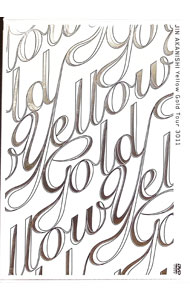 JIN AKANISHI Yellow Gold Tour 3011
Yellow
Gold
Yellow
Gold
Yel
llow
DVD